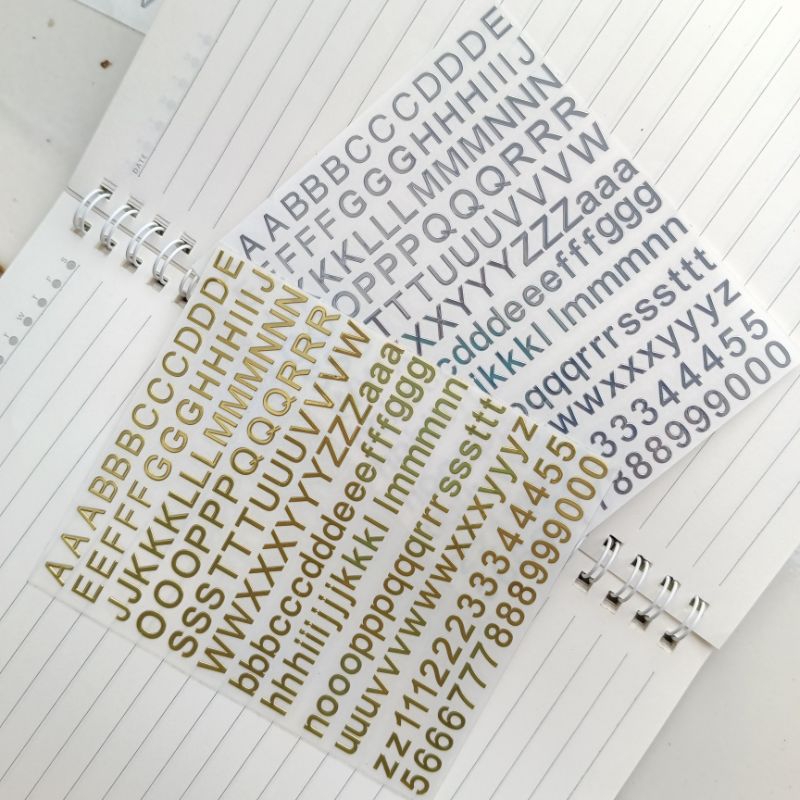 DATE
AABBBCCCDDDE
FFFGGGHHHIIIJ
KKKLLLMMMNNN
OPPPQQQRRR
TTTUUUVVVW
XXYYYZZZaaa
cdddeeefffggg
kkkl lmmmmnn
qqqrrrsssttt
wwxxxyyyz
33344455
888999000
AAABBBCCCDDDE
EEFFFGGGHHHIIIJ
JJKKKLLLMMMNNN
OOOPPPQQQRRR
SSSTTTUUUVVVW
WWXXXYYYZZZaaa
bbbcccdddeeefffggg
hhhiiijjjkkkl lmmmmnn
nooopppqqqrrrsssttt
uuuvvvwwwxxxyyyz
zz11122233344455
5666777888999000